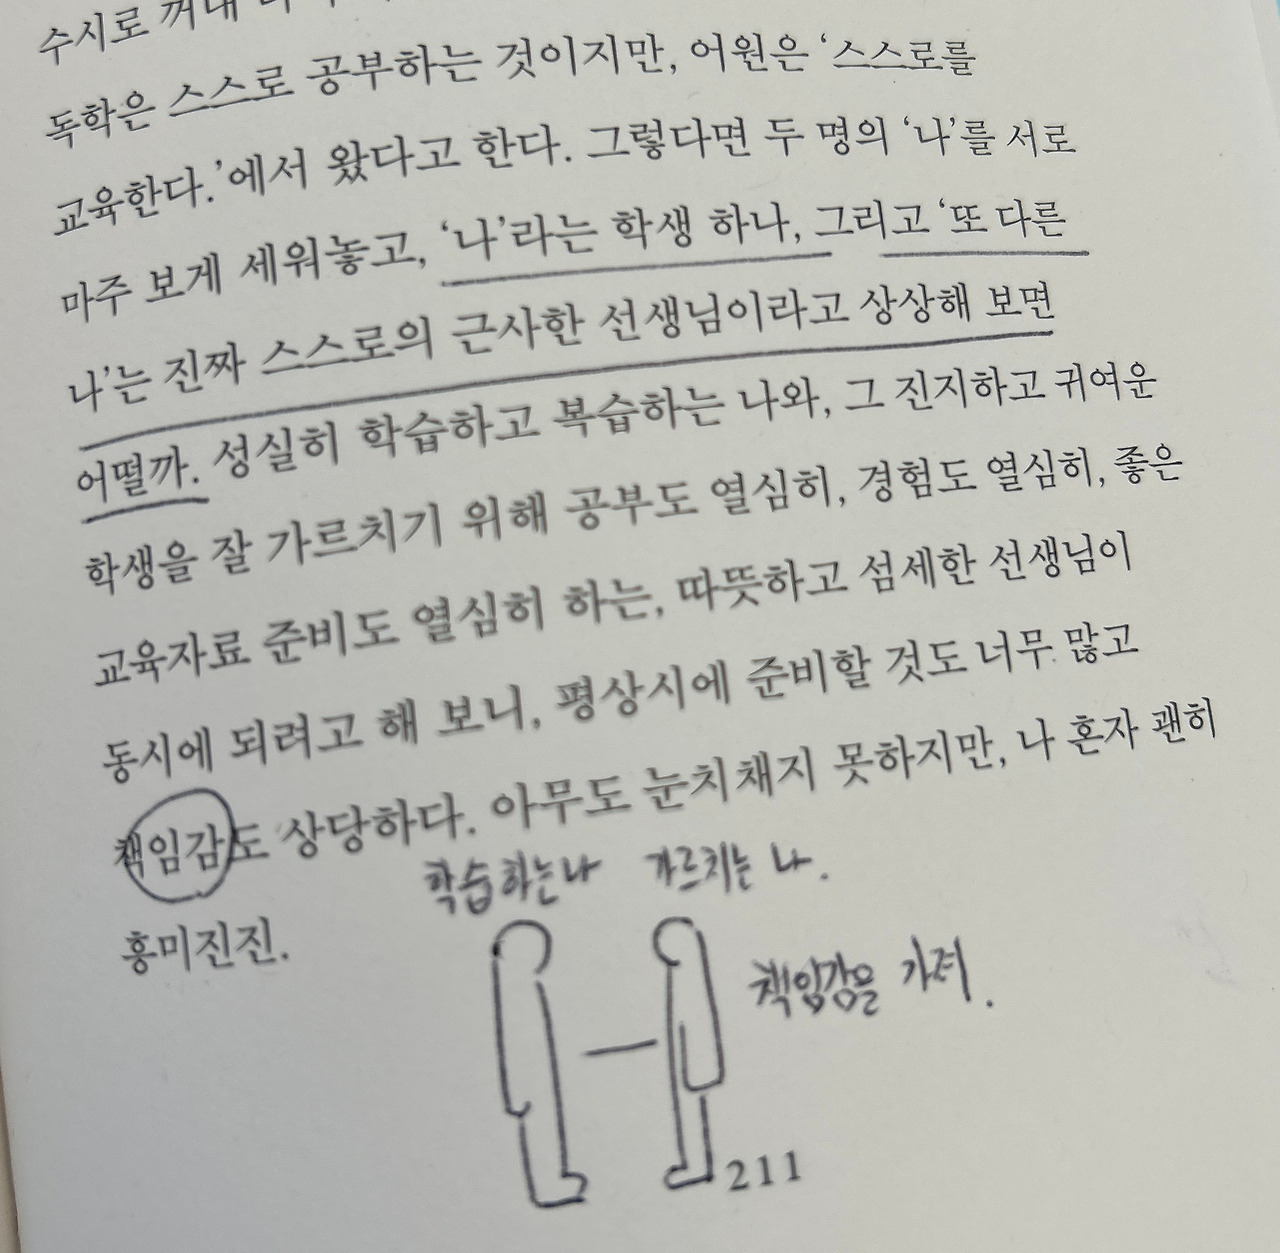 수시로 꺼내
독학은 스스로 공부하는 것이지만, 어원은 ‘스스로를
교육한다.’에서 왔다고 한다. 그렇다면 두 명의 ‘나’를 서로
마주 보게 세워놓고, ‘나’라는 학생 하나, 그리고 ‘또 다른
나’는 진짜 스스로의 근사한 선생님이라고 상상해 보면
어떨까. 성실히 학습하고 복습하는 나와, 그 진지하고 귀여운
학생을 잘 가르치기 위해 공부도 열심히, 경험도 열심히, 좋은
교육자료 준비도 열심히 하는, 따뜻하고 섬세한 선생님이
동시에 되려고 해 보니, 평상시에 준비할 것도 너무 많고
책임감도 상당하다. 아무도 눈치채지 못하지만, 나 혼자 괜히
흥미진진.
학습하는 나 가르치는 나.
책임감을 가져.
211